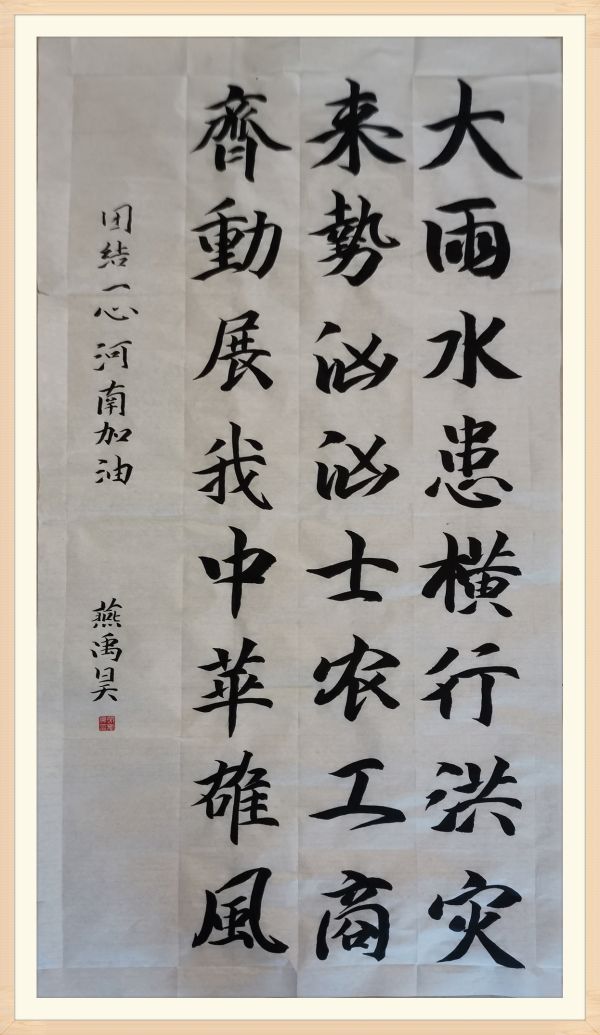 大雨水患橫行洪灾
来勢汹汹士农工商
齊動展我中華雄風
团结一心河南加油
燕禹昊